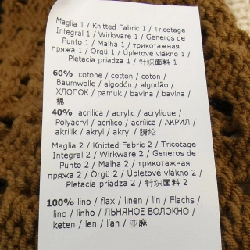 Maglia 1 / Knitted Fabric 1 / Tricotage
Integral 1 / Wirkware 1 / Generos de
Punto 1 / Malha 1 / трикотажная
пряжа 1 / Örgü 1 / Úpletové vlákno 1 /
Pletacia priadza 1 / 针织面料 1
60% cotone / cotton / coton /
Baumwolle / algodón / algodão /
ХЛОПОК / pamuk / bavlna / bavlna /
棉
40% acrilica / acrylic / acrylique /
Polyacryl / acrílico / acrílico / АКРИЛ /
akrilik / akryl / akryl / 腈纶
Maglia 2 / Knitted Fabric 2 / Tricotage
Integral 2 / Wirkware 2 / Generos de
Punto 2 / Malha 2 / трикотажная
пряжа 2 / Örgü 2 / Úpletové vlákno 2 /
Pletacia priadza 2 / 针织面料 2
100% lino / flax / linen / lin / Flachs /
lino / linho / ЛЬНЯНОЕ ВОЛОКНО /
keten / len / ľan / 亚麻